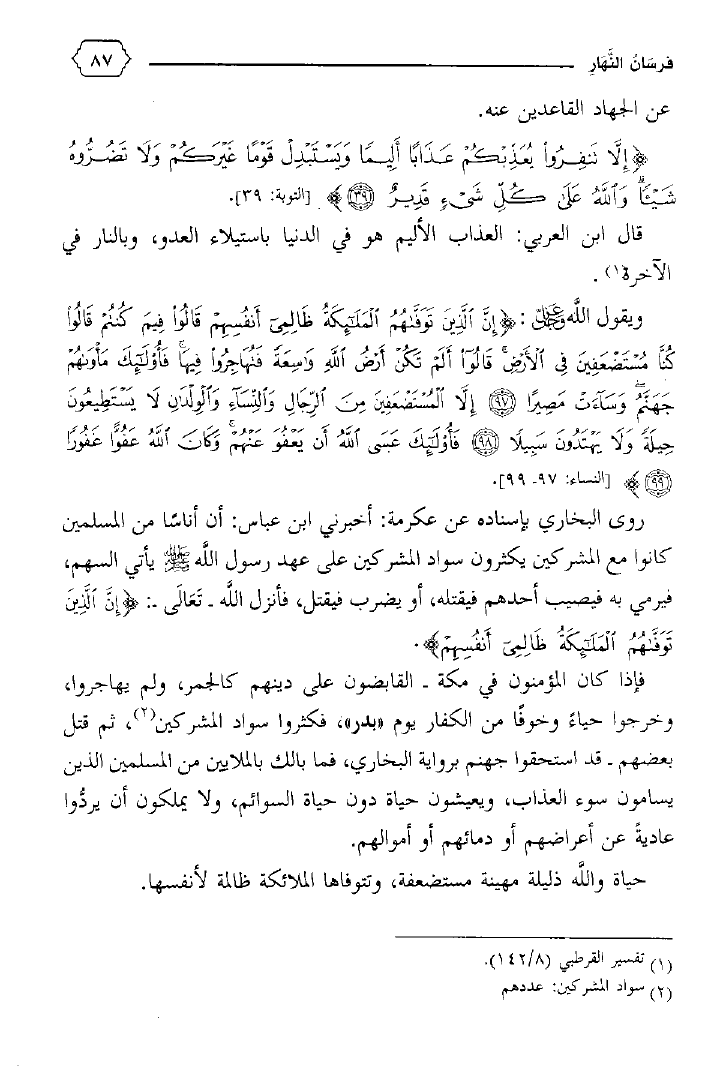 فرسَانُ النَّهَارِ ٨٧
عن الجهاد القاعدين عنه.
﴿ إِلَّا تَنفِرُوا۟ يُعَذِّبْكُمْ عَذَابًا أَلِيمًا وَيَسْتَبْدِلْ قَوْمًا غَيْرَكُمْ وَلَا تَضُرُّوهُ
شَيْـًٔا ۗ وَٱللَّهُ عَلَىٰ كُلِّ شَىْءٍ قَدِيرٌ ٣٩ ﴾ [التوبة: ٣٩].
قال ابن العربي: العذاب الأليم هو في الدنيا باستيلاء العدو، وبالنار في
الآخرة(١).
ويقول اللَّه ﷻ: ﴿ إِنَّ ٱلَّذِينَ تَوَفَّىٰهُمُ ٱلْمَلَـٰٓئِكَةُ ظَالِمِىٓ أَنفُسِهِمْ قَالُوا۟ فِيمَ كُنتُمْ ۖ قَالُوا۟
كُنَّا مُسْتَضْعَفِينَ فِى ٱلْأَرْضِ ۚ قَالُوٓا۟ أَلَمْ تَكُنْ أَرْضُ ٱللَّهِ وَٰسِعَةً فَتُهَاجِرُوا۟ فِيهَا ۚ فَأُو۟لَـٰٓئِكَ مَأْوَىٰهُمْ
جَهَنَّمُ ۖ وَسَآءَتْ مَصِيرًا ٩٧ إِلَّا ٱلْمُسْتَضْعَفِينَ مِنَ ٱلرِّجَالِ وَٱلنِّسَآءِ وَٱلْوِلْدَٰنِ لَا يَسْتَطِيعُونَ
حِيلَةً وَلَا يَهْتَدُونَ سَبِيلًا ٩٨ فَأُو۟لَـٰٓئِكَ عَسَى ٱللَّهُ أَن يَعْفُوَ عَنْهُمْ ۚ وَكَانَ ٱللَّهُ عَفُوًّا غَفُورًا
٩٩ ﴾ [النساء: ٩٧ـ ٩٩].
روى البخاري بإسناده عن عكرمة: أخبرني ابن عباس: أن أناسًا من المسلمين
كانوا مع المشركين يكثرون سواد المشركين على عهد رسول اللَّه ﷺ يأتي السهم،
فيرمي به فيصيب أحدهم فيقتله، أو يضرب فيقتل، فأنزل اللَّه ـ تَعَالَى ـ: ﴿ إِنَّ ٱلَّذِينَ
تَوَفَّىٰهُمُ ٱلْمَلَـٰٓئِكَةُ ظَالِمِىٓ أَنفُسِهِمْ ﴾.
فإذا كان المؤمنون في مكة ـ القابضون على دينهم كالجمر، ولم يهاجروا،
وخرجوا حياءً وخوفًا من الكفار يوم «بدر»، فكثروا سواد المشركين(٢)، ثم قتل
بعضهم ـ قد استحقوا جهنم برواية البخاري، فما بالك بالملايين من المسلمين الذين
يسامون سوء العذاب، ويعيشون حياة دون حياة السوائم، ولا يملكون أن يردُّوا
عاديةً عن أعراضهم أو دمائهم أو أموالهم.
حياة واللَّه ذليلة مهينة مستضعفة، وتتوفاها الملائكة ظالمة لأنفسها.
(١) تفسير القرطبي (١٤٢/٨).
(٢) سواد المشركين: عددهم